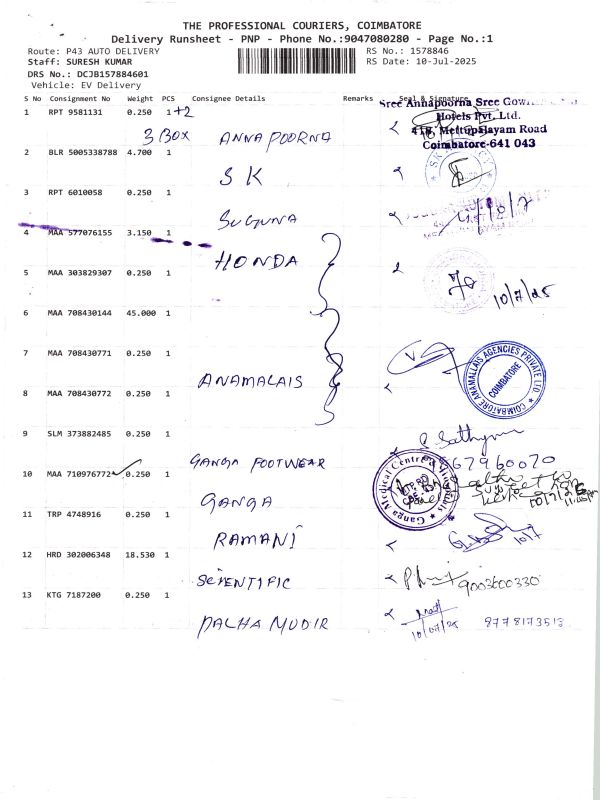 THE PROFESSIONAL COURIERS, COIMBATORE
Delivery Runsheet - PNP - Phone No.:9047080280 - Page No.:1
Route: P43 AUTO DELIVERY
RS No.: 1578846
Staff: SURESH KUMAR
RS Date: 10-Jul-2025
DRS No.: DCJB157884601
Vehicle: EV Delivery
S No Consignment No Weight PCS Consignee Details Remarks Seal & Signature
Sree Annapoorna Sree
1 RPT 9581131 0.250 1 +2
Hotels Pvt. Ltd.
3 BOX ANNAPOORNA
Mettupalayam Road
Coimbatore-641 043
2 BLR 5005338788 4.700 1
S K
3 RPT 6010058 0.250 1
SUGUNA
4 MAA 577076155 3.150 1
HONDA
5 MAA 303829307 0.250 1
10/7/25
6 MAA 708430144 45.000 1
7 MAA 708430771 0.250 1
ANAMALAIS
COIMBATORE ANAMALLAIS AGENCIES PRIVATE LTD
COIMBATORE
8 MAA 708430772 0.250 1
9 SLM 373882485 0.250 1
GANGA FOOTWEAR
10 MAA 710976772 0.250 1
Ganga Medical Centre & Hospitals
GANGA
11 TRP 4748916 0.250 1
RAMANI
10/7
12 HRD 302006348 18.530 1
SCIENTIFIC
9003600330
13 KTG 7187200 0.250 1
PALHA MUDIR
10/07/25
9778173513